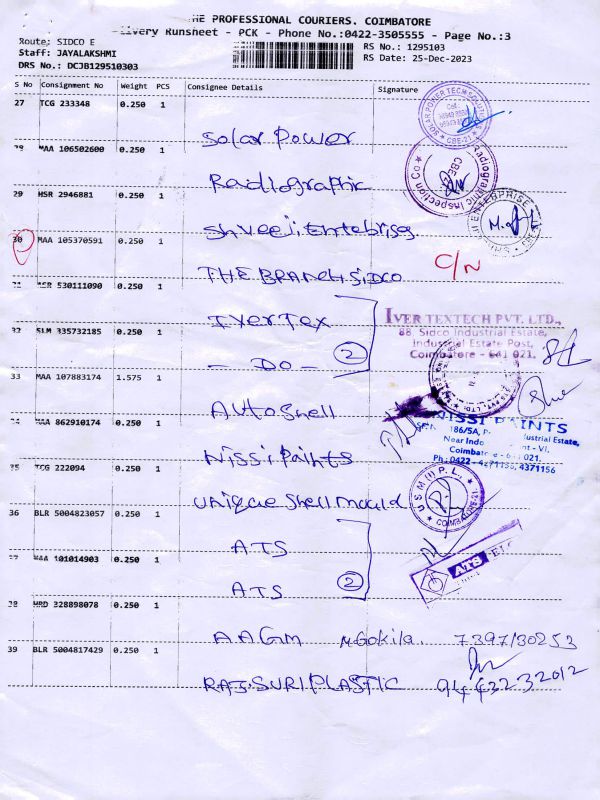 HE PROFESSIONAL COURIERS. COIMBATORE
ivery Runsheet - PCK - Phone No.:0422-3505555 - Page No.:3
Route: SIDCO E
RS No.: 1295103
Staff: JAYALAKSHMI
RS Date: 25-Dec-2023
DRS No.: DCJB129510303
S No Consignment No Weight PCS Consignee Details Signature
27 TCG 233348 0.250 1
Solar Power
28 MAA 106502600 0.250 1
Radiographic
Radiographic Inspection Co
CBE
29 HSR 2946881 0.250 1
Shreeji Entebrises
ENTERPRISE
30 MAA 105370591 0.250 1
THE BRANCH SIDCO C/N
31 HSR 530111090 0.250 1
Iver Tex
IVER TEXTECH PVT. LTD.,
88, Sidco Industrial Estate,
Industrial Estate Post,
Coimbatore - 641 021.
32 SLM 335732185 0.250 1
- DO - 2
33 MAA 107883174 1.575 1
Auto Shell
NISSI PAINTS
186/5A, ustrial Estate,
Near Indo nt - VI,
34 MAA 862910174 0.250 1
Nissi Paints
Ph : 0422 - 4271156, 4371156
35 TCG 222094 0.250 1
Unique Shell Mould
U S M (I) P. L.
COIMBATORE-21
36 BLR 5004823057 0.250 1
ATS
37 MAA 101014903 0.250 1
ATS 2
ATS
38 HRD 328898078 0.250 1
AAGM Gokila. 7397130253
39 BLR 5004817429 0.250 1
RAJ SURI PLASTIC 9443232012